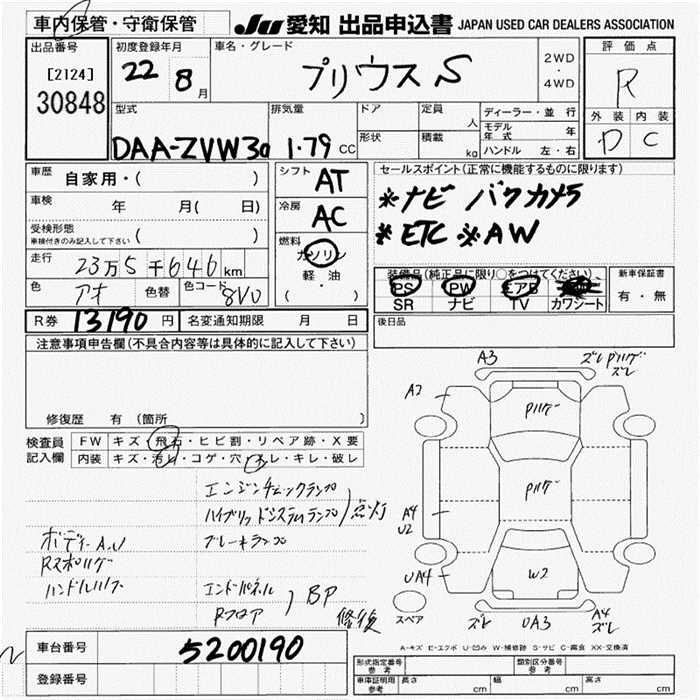 車内保管・守衛保管
JU 愛知 出品申込書 JAPAN USED CAR DEALERS ASSOCIATION
出品番号
[2124]
30848
初度登録年月
22 8月
車名・グレード
プリウス S
2WD
・
4WD
評価点
R
外装 内装
D C
型式
DAA-ZVW30
排気量
1.79 CC
ドア
形状
定員
人
積載
kg
ディーラー・並行
モデル年式 年
ハンドル 左・右
車歴 自家用・( )
車検 年 月( 日)
受検形態
車検付きのみ記入して下さい ( )
走行 23万5千646km
色 アオ 色替 色コード 8V0
シフト AT
冷房 AC
燃料
ガソリン
軽・油
( )
セールスポイント(正常に機能するものに限ります)
※ナビ バクカメラ
※ETC ※AW
装備品(純正品に限り○をつけてください)
PS PW エアB
SR ナビ TV カワシート
新車保証書
有・無
R券 13190 円
名変通知期限 月 日
後日品
注意事項申告欄(不具合内容等は具体的に記入して下さい)
修復歴 有(箇所 )
検査員記入欄
FW キズ・飛石・ヒビ割・リペア跡・X要
内装 キズ・汚れ・コゲ・穴・スレ・キレ・破レ
エンジンチェックランプ
ハイブリッドシステムランプ 点灯
ブレーキランプ
ボディーA,U
Rスポハゲ
ハンドルハゲ
エンドパネル
Rフロア
BP
修復
A3
ズレ Pハゲ
ズレ
A2
Pハゲ
Pハゲ
A4
U2
UA4
W2
スペア
ズレ
UA3
A4
ズレ
A-キズ E-エクボ U-凹み W-補修跡 S-サビ C-腐食 XX-交換済
車台番号 5200190
登録番号
形式指定番号
参考
類別区分番号
参考
車庫証明用
参考
長さ cm
幅 cm
高さ cm